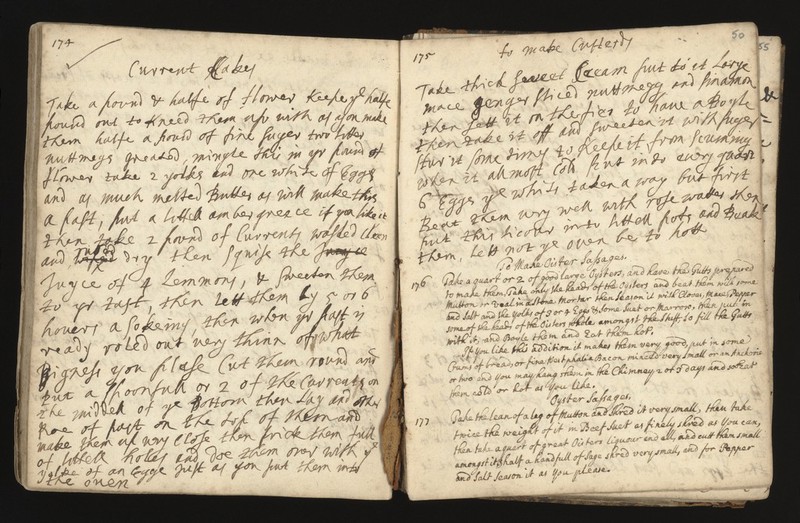 174
Current Cakes
Take a pound & halfe of flower keepe ye halfe
pound out to kneed them up with as you make
them halfe a poud of fine suger two litle
nuttmegs greated, mingle this in yr pound of
flower take 2 yolkes and one white of Eggs
and as much melted Butter as will make this
a past, put a littell ambergreece if you like it
then take 2 pound of Currents washed cleen
and dry then squise the
Juyce of 4 Lemmons, & sweeten them
to yr tast, then lett them ly 5 or 6
howers a sokeing, then when yr past is
ready roled out very thinn of what
Bigness you please Cut them round and
put a spoonfull or 2 of the Currents on
the middel of ye Bottom then lay and other
peece of past on the top of them and
make them up very Close then prick them full
of littell holes and doe them over with ye
yolke of an Egge just as you put them into
the oven
50
175
to make Custerds
Take thick sweet Cream put to it Large
mace genger sliced nuttmegg and sinamon
then sett it on the fier to have a Boyle
then take it off and sweeten it with suger
stur it some times to keepe it from scumming
when it allmost Cold put in to every quart
6 Eggs ye whits taken a way but first
Beat them very well with rose watter then
put this licour into littell pots and Bake
them, Lett not ye oven be to hott
To Make Oister Sasages.
176 Take a quart or 2 of good large Oysters, and have the Gutts prepared
to make them, Take only the heads of the Oisters and beat them with some
Mutton or Veal in a stone Mortar then season it with Cloves, Mace, Pepper
and Salt and the yolks of 3 or 4 Eggs & some Suet or Marrow, then put in
some of the heads of the Oisters whole amongst the stuff, so fill the Gutts
with it, and Boyle them and Eat them hot.
If you like this addition it makes them very good, put in some
Crums of bread, or fine Westphalia Bacon minced very small or an Anchovie
or two and you may hang them in the Chimney 2 or 3 days and so Eat
them cold or hot as you like.
Oyster Sasages.
177 Take the lean of a leg of Mutton and shred it very small, then take
twice the weight of it in Beef Suet as finely shred as you can,
then take a quart of great Oisters liquour and all, and cutt them small
amongst it, half a handfull of Sage shred very small, and for Pepper
and Salt season it as you please.
55